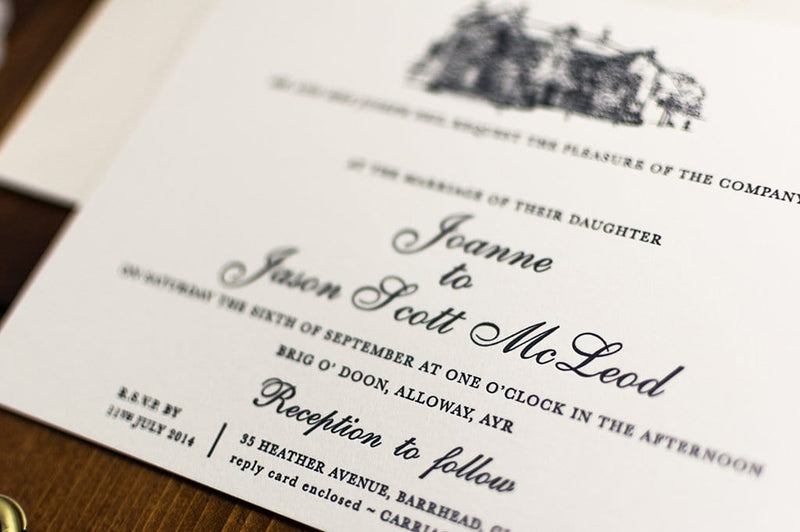 REQUEST THE PLEASURE OF THE COMPANY
AT THE MARRIAGE OF THEIR DAUGHTER
Joanne
to
Jason Scott McLeod
ON SATURDAY THE SIXTH OF SEPTEMBER AT ONE O'CLOCK IN THE AFTERNOON
BRIG O' DOON, ALLOWAY, AYR
Reception to follow
R.S.V.P. BY
11TH JULY 2014
35 HEATHER AVENUE, BARRHEAD,
reply card enclosed ~